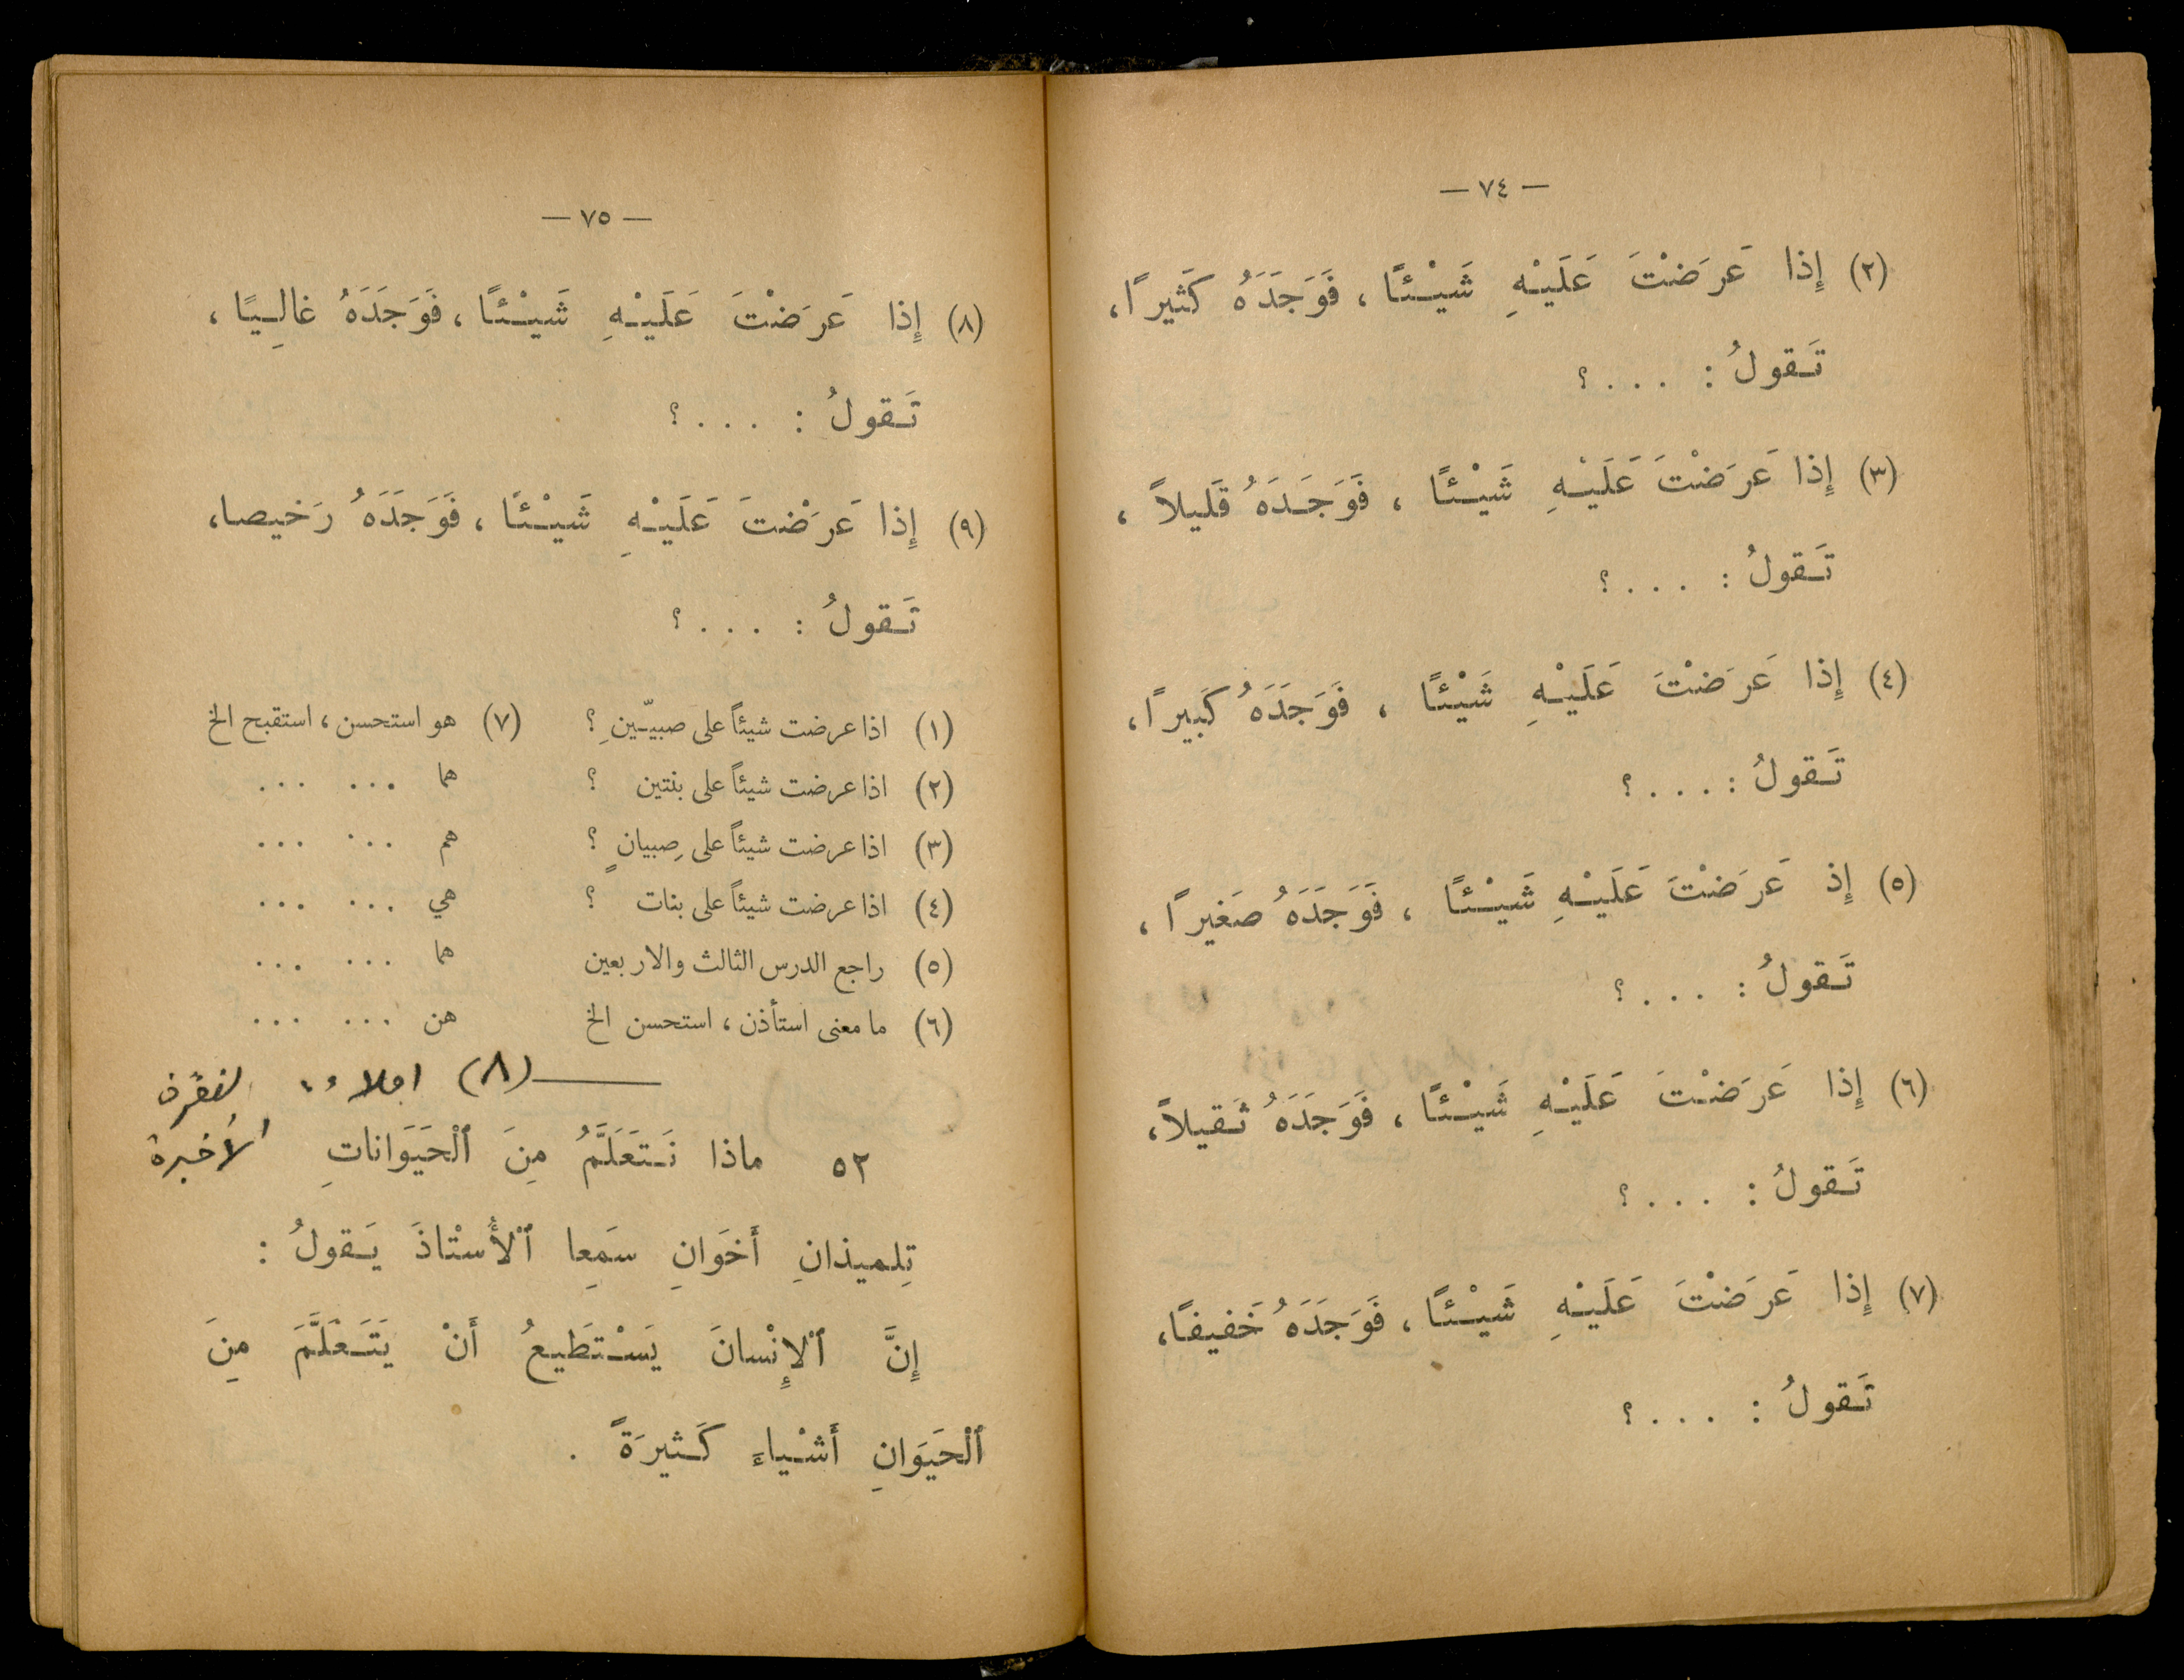 — ٧٤ —
(٢) إِذا عَرَضْتَ عَلَيْهِ شَيْئًا ، فَوَجَدَهُ كَثيرًا،
تَقولُ : . . . ؟
(٣) إِذا عَرَضْتَ عَلَيْهِ شَيْئًا ، فَوَجَدَهُ قَليلاً ،
تَقولُ : . . . ؟
(٤) إِذا عَرَضْتَ عَلَيْهِ شَيْئًا ، فَوَجَدَهُ كَبيرًا،
تَقولُ : . . . ؟
(٥) إِذ عَرَضْتَ عَلَيْهِ شَيْئًا ، فَوَجَدَهُ صَغيرًا ،
تَقولُ : . . . ؟
(٦) إِذا عَرَضْتَ عَلَيْهِ شَيْئًا ، فَوَجَدَهُ ثَقيلاً،
تَقولُ : . . . ؟
(٧) إِذا عَرَضْتَ عَلَيْهِ شَيْئًا ، فَوَجَدَهُ خَفيفًا،
تَقولُ : . . . ؟
— ٧٥ —
(٨) إِذا عَرَضْتَ عَلَيْهِ شَيْئًا ، فَوَجَدَهُ غالِيًا ،
تَقولُ : . . . ؟
(٩) إِذا عَرَضْتَ عَلَيْهِ شَيْئًا ، فَوَجَدَهُ رَخيصا،
تَقولُ : . . . ؟
(١) اذا عرضت شيئاً على صبيّينِ ؟
(٢) اذا عرضت شيئاً على بنتين ؟
(٣) اذا عرضت شيئاً على صِبيانٍ ؟
(٤) اذا عرضت شيئاً على بنات ؟
(٥) راجع الدرس الثالث والاربعين
(٦) ما معنى استأذن ، استحسن الخ
(٧) هو استحسن ، استقبح الخ
هما ... ...
هم ... ...
هي ... ...
هما ... ...
هن ... ...
(٨) املاء
الأخيرة
٥٢ ماذا نَتَعَلَّمُ مِنَ ٱلْحَيَوَاناتِ
تِلميذانِ أَخَوانِ سَمِعا ٱلْأُسْتاذَ يَقولُ :
إِنَّ ٱلْإِنْسانَ يَسْتَطيعُ أَنْ يَتَعَلَّمَ مِنَ
ٱلْحَيَوَانِ أَشْياءَ كَثيرَةً .